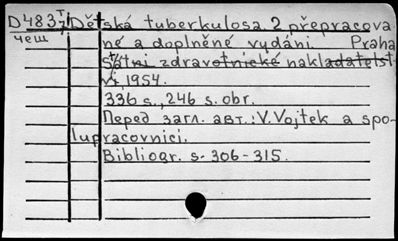 D 483 T/7 Dětská tuberkulosa. 2 přepracova
чеш né a doplněné vydání. Praha
Státni zdravotnické nakladatelst
vi, 1954.
336 s., 246 s. obr.
Перед загл. авт.: V. Vojtek a spo-
lupracovníci.
Bibliogr. s. 306-315.